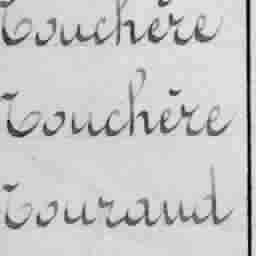 Touchère
Touchère
Touraud